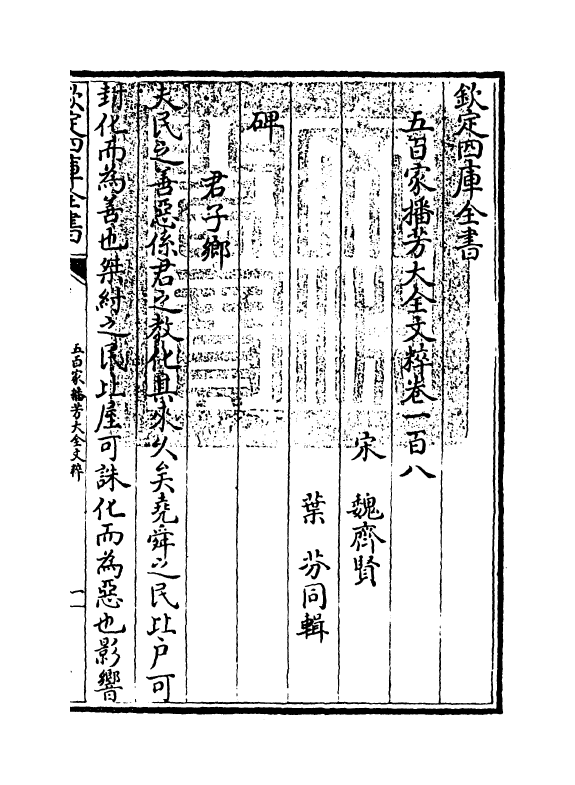 欽定四庫全書
五百家播芳大全文粹卷一百八
宋 魏齊賢
葉 芬同輯
碑
君子鄉
夫民之善惡係君之敎化其來久矣堯舜之民比户可
封化而為善也桀紂之民比屋可誅化而為惡也影響
欽定四庫全書
五百家播芳大全文粹
一